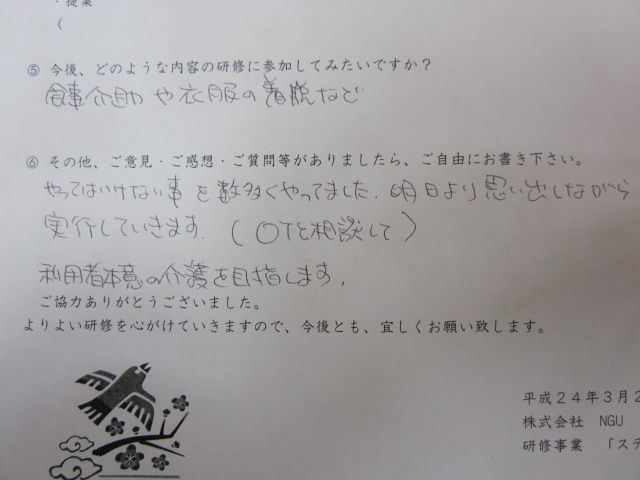 ・提案
(
⑤ 今後、どのような内容の研修に参加してみたいですか？
食事介助や衣服の着脱など
⑥ その他、ご意見・ご感想・ご質問等がありましたら、ご自由にお書き下さい。
やってはいけない事を数多くやってました．明日より思い出しながら
実行していきます．（OTと相談して）
利用者本意の介護を目指します．
ご協力ありがとうございました。
よりよい研修を心がけていきますので、今後とも、宜しくお願い致します。
平成２４年３月２
株式会社 NGU
研修事業 「ステ